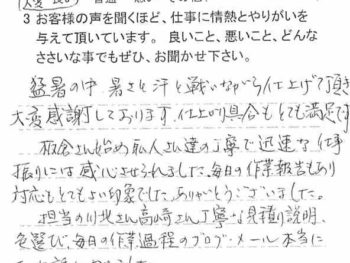 大変良い
3 お客様の声を聞くほど、仕事に情熱とやりがいを
与えて頂いています。 良いこと、悪いこと、どんな
ささいな事でもぜひ、お聞かせ下さい。
猛暑の中 暑さと汗と戦いながら仕上げて頂き
大変感謝しております。仕上がり具合もとても満足です
板倉さん始め職人さん達の丁寧で迅速な仕事
振りには感心させられました。毎日の作業報告もあり
対応もとてもよい印象でした。ありがとうございました。
担当の川北さん高崎さん丁寧な見積り説明、
色選び、毎日の作業過程のブログ・メール本当に